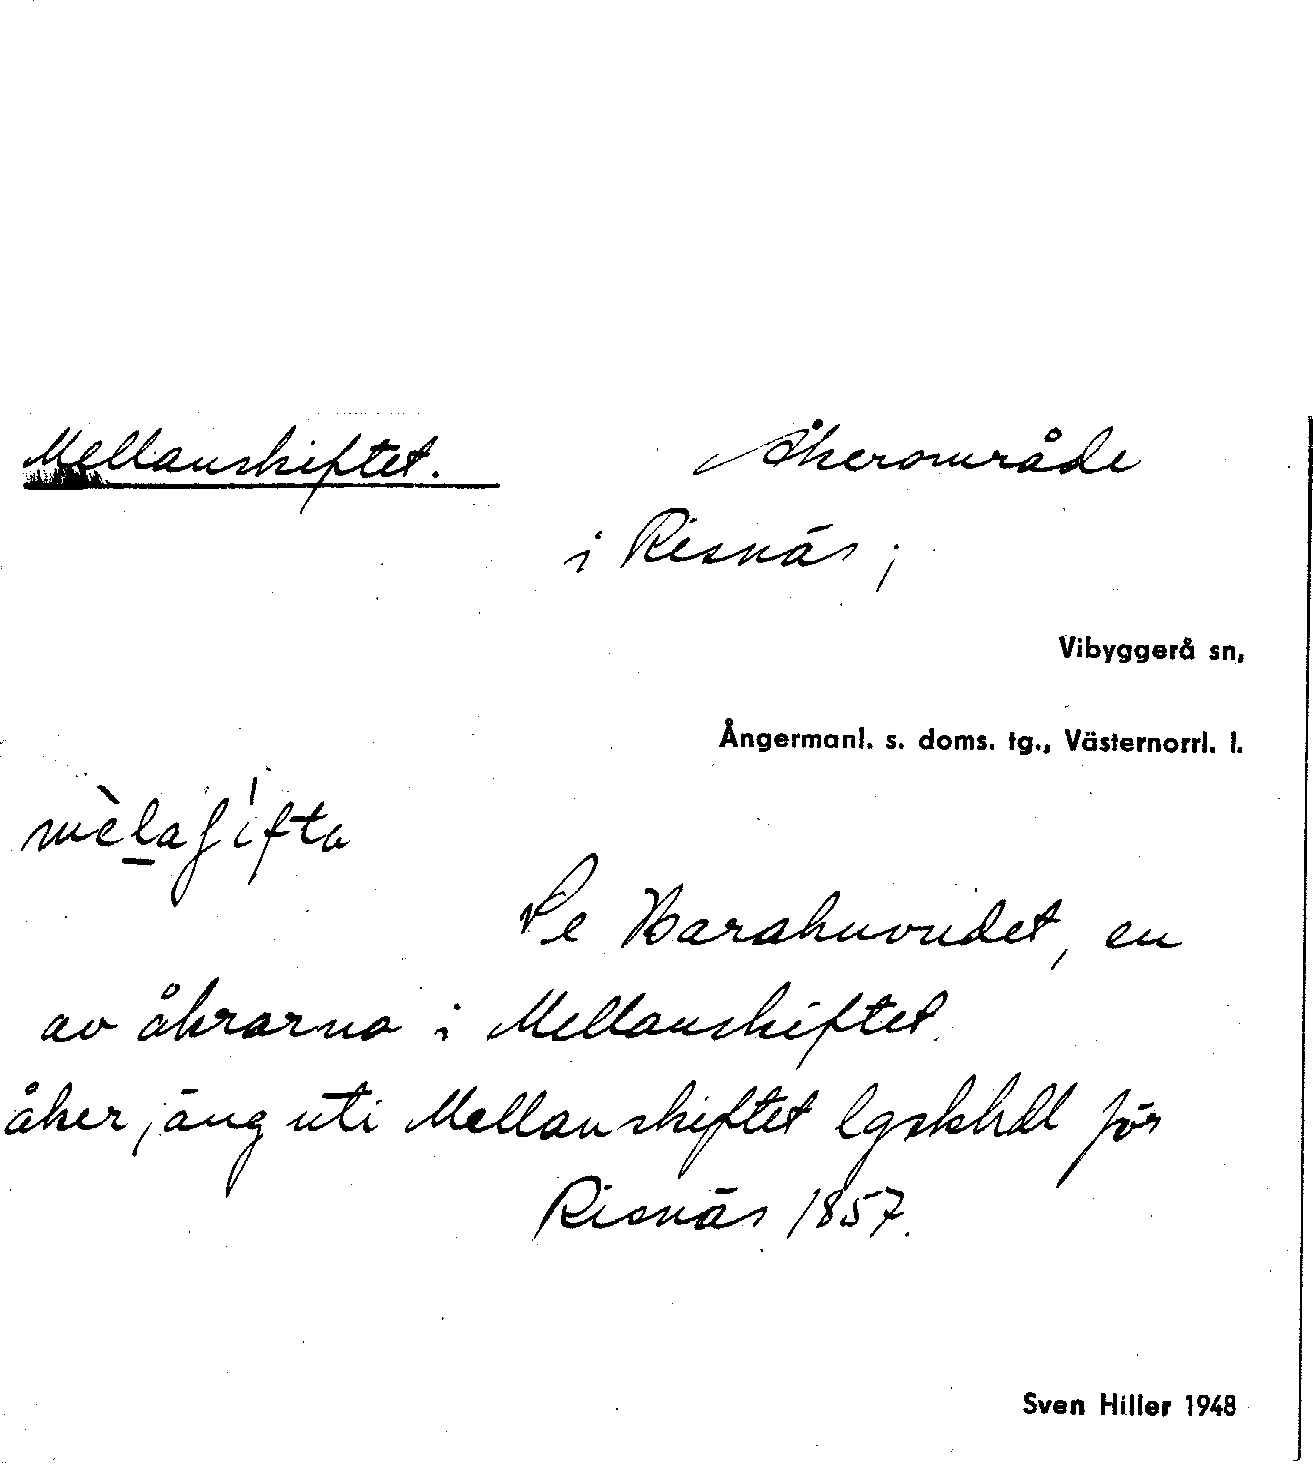 Mellanskiftet. Åkerområde
i Risnäs;
Vibyggerå sn,
Ångermanl. s. doms. tg., Västernorrl. l.
mèlaʃifta
Se Barahuvudet, en
av åkrarna i Mellanskiftet.
åker, äng uti Mellanskiftet lgskhdl för
Risnäs 1857.
Sven Hiller 1948